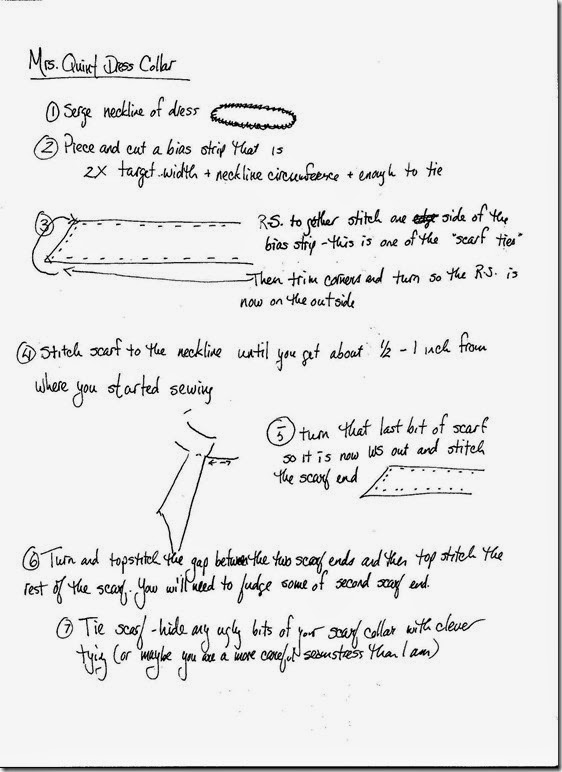 Mrs. Quint Dress Collar
① Serge neckline of dress
② Piece and cut a bias strip that is
2X target width + neckline circumference + enough to tie
③ R.S. together stitch one side of the
bias strip - this is one of the "scarf ties"
Then trim corners and turn so the R.S. is
now on the outside
④ Stitch scarf to the neckline until you get about 1/2 - 1 inch from
where you started sewing
⑤ turn that last bit of scarf
so it is now WS out and stitch
the scarf end
⑥ Turn and topstitch the gap between the two scarf ends and then top stitch the
rest of the scarf. You will need to fudge some of second scarf end.
⑦ Tie scarf - hide any ugly bits of your scarf collar with clever
tying (or maybe you are a more careful seamstress than I am)